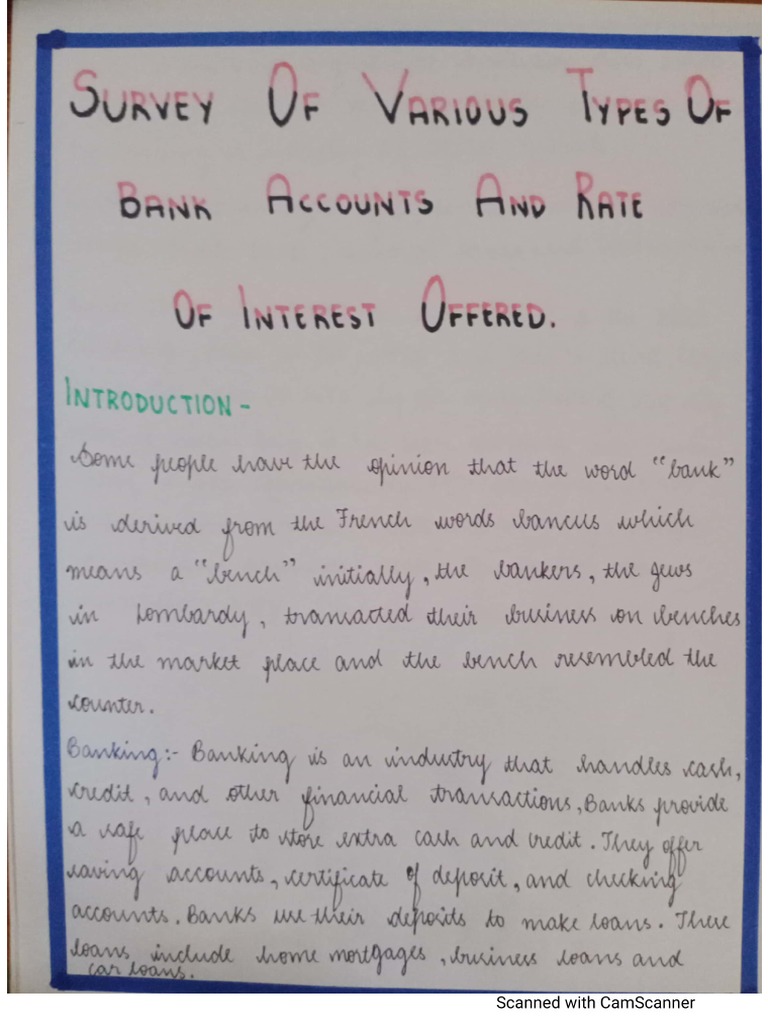 SURVEY OF VARIOUS TYPES OF
BANK ACCOUNTS AND RATE
OF INTEREST OFFERED.
INTRODUCTION -
Some people have the opinion that the word "bank"
is derived from the French words bancus which
means a "bench" initially, the bankers, the jews
in Lombardy, transacted their business on benches
in the market place and the bench resembled the
counter.
Banking:- Banking is an industry that handles cash,
credit, and other financial transactions, Banks provide
a safe place to store extra cash and credit. They offer
saving accounts, certificate of deposit, and checking
accounts. Banks use their deposits to make loans. These
loans include home mortgages, business loans and
car loans.
Scanned with CamScanner